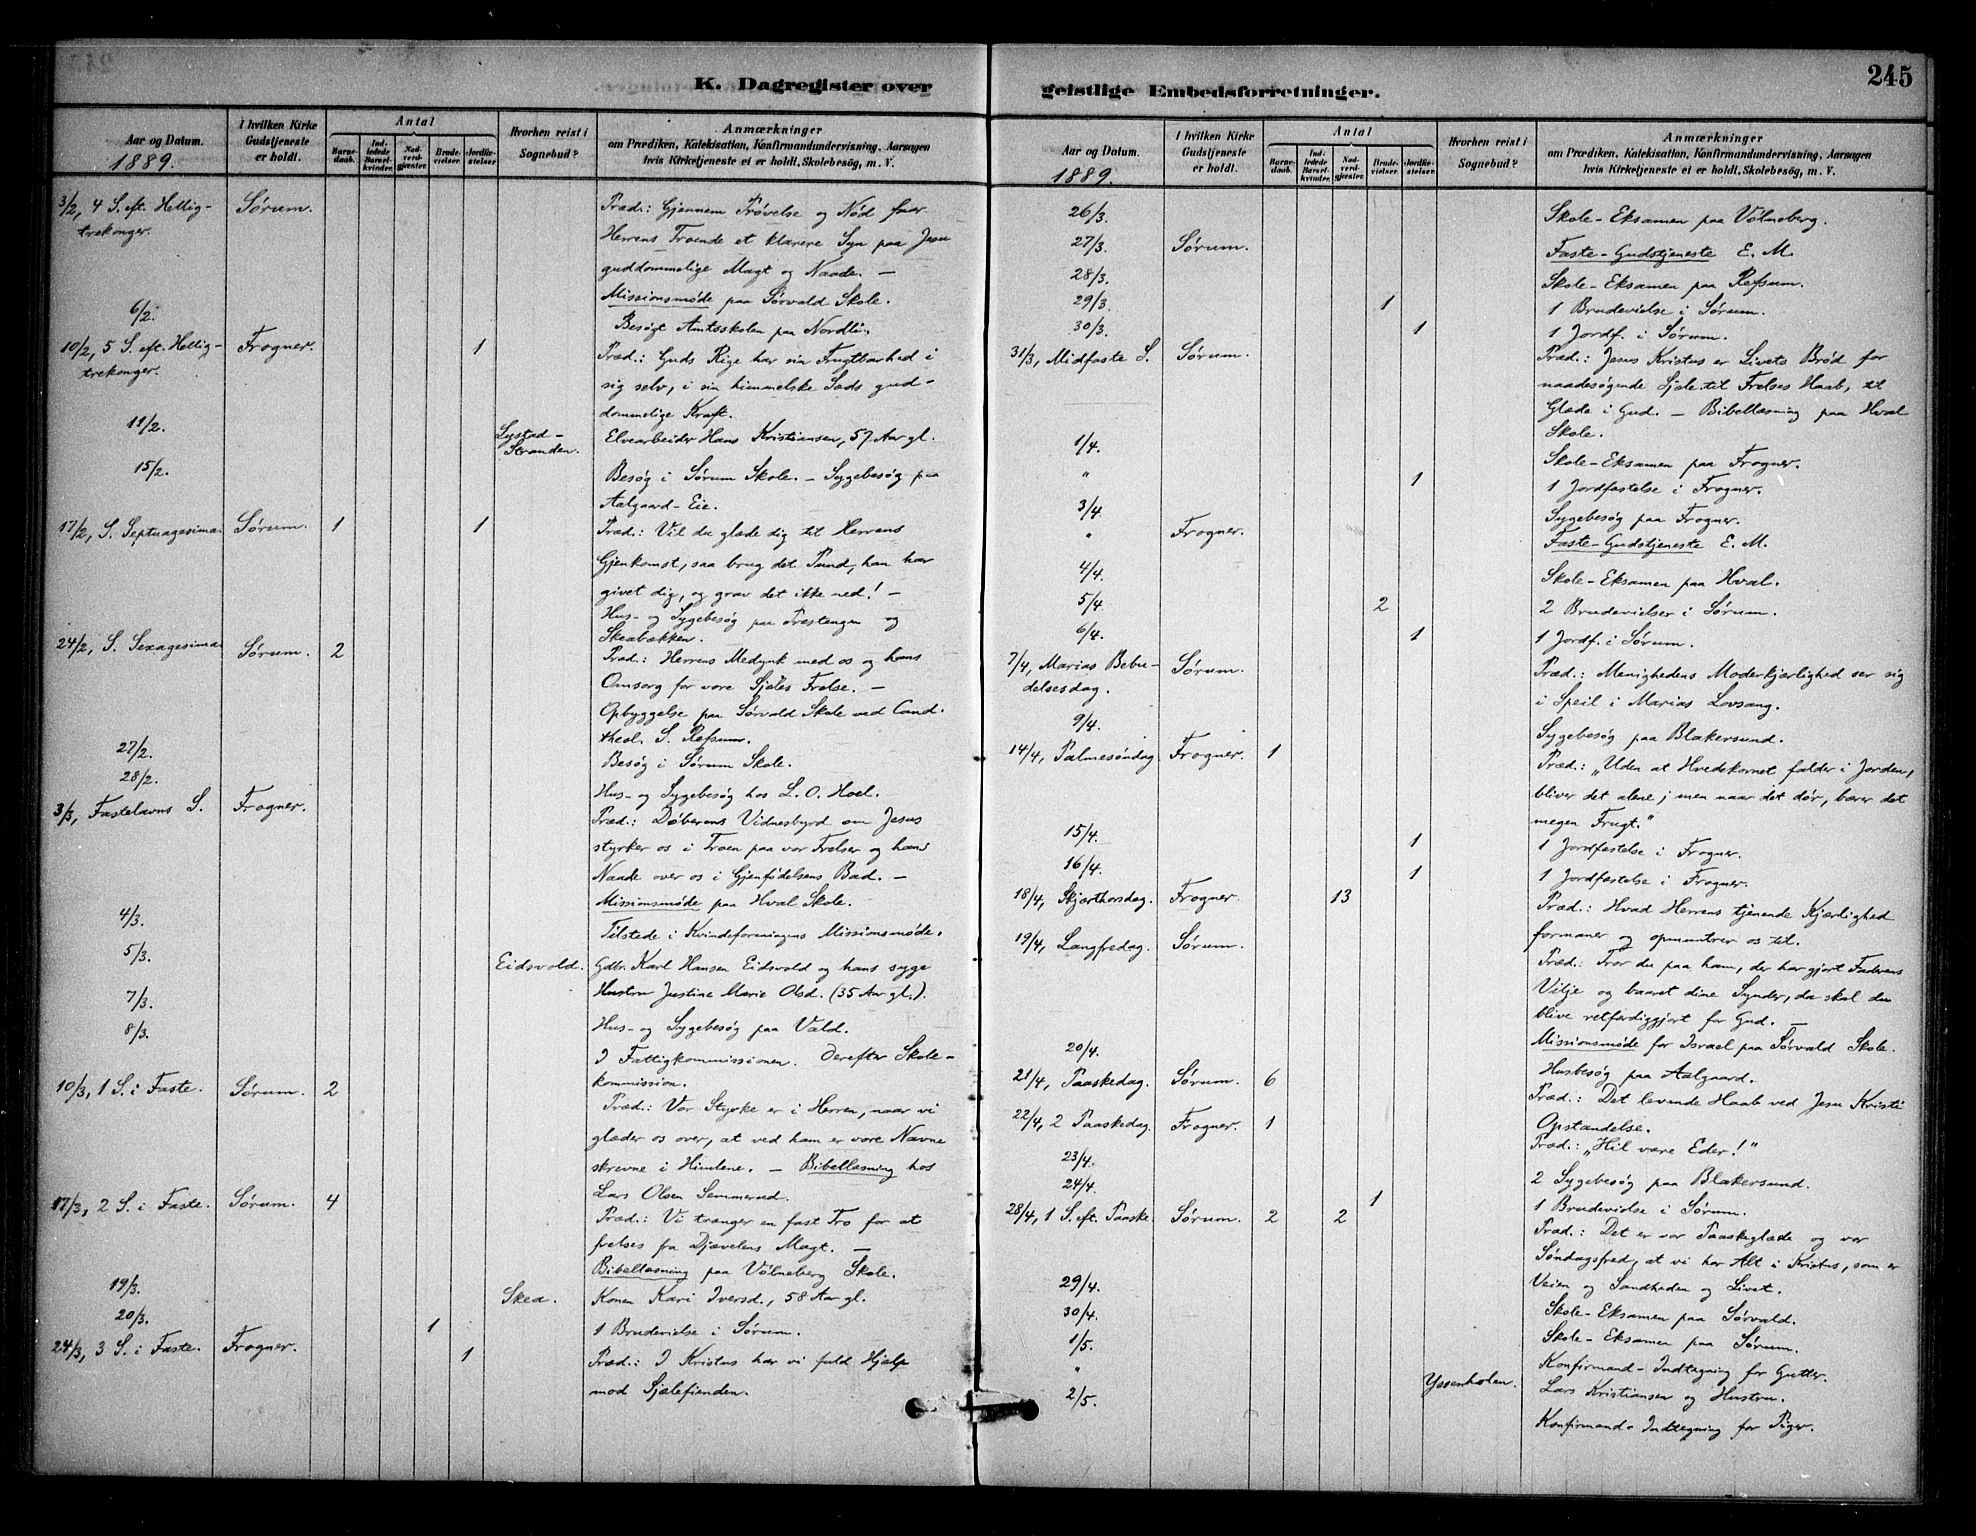 245
K. Dagregister over
geistlige Embedsforretninger.
Aar og Datum.
1889.
I hvilken Kirke Gudstjeneste er holdt.
Antal
Barnedaab.
Indledede Barselkvinder.
Nadverdgjester.
Brudevielser.
Jordfæstelser
Hvorhen reist i Sognebud?
Anmærkninger
om Prædiken, Katekisation, Konfirmandundervisning, Aarsagen
hvis Kirketjeneste ei er holdt, Skolebesøg, m. V.
3/2, 4 S. eft. Hellig- Sørum. Præd.: Gjennem Prøvelse og Nød faar
trekonger. Herrens Troende et klarere Syn paa Jesu
guddommelige Magt og Naade. —
Missionsmøde paa Sørvald Skole.
6/2. Besøgt Amtsskolen paa Nordli.
10/2, 5 S. eft. Hellig- Frogner. 1 Præd.: Guds Rige har sin Frugtbarhed i
trekonger. sig selv, i sin himmelske Sæds gud-
dommelige Kraft.
11/2. Lystad- Elvearbeider Hans Kristiansen, 57 Aar gl.
Stranden.
15/2. Besøg i Sørum Skole. — Sygebesøg paa
Aalgaard-Eie.
17/2, S. Septuagesima Sørum. 1 1 Præd.: Vil du glæde dig til Herrens
Gjenkomst, saa brug det Pund, han har
givet dig, og grav det ikke ned! —
Hus- og Sygebesøg paa Prestengen og
Skeabækken.
24/2, S. Sexagesima Sørum. 2 Præd.: Herrens Medynk med os og hans
Omsorg for vore Sjæles Frelse. —
Opbyggelse paa Sørvald Skole ved Cand.
theol. S. Refsum.
27/2. Besøg i Sørum Skole.
28/2. Hus- og Sygebesøg hos L. O. Hoel.
3/3, Fastelavns S. Frogner. Præd.: Døberens Vidnesbyrd om Jesus
styrker os i Troen paa vor Frelser og hans
Naade over os i Gjenfødelsens Bad. —
Missionsmøde paa Hval Skole.
4/3. Tilstede i Kvindeforeningens Missionsmøde.
5/3. Eidsvold. Gdbr. Karl Hansen Eidsvold og hans syge
Hustru Justine Marie Olsd. (35 Aar gl.).
7/3. Hus- og Sygebesøg paa Vald.
8/3. I Fattigkommissionen. Derefter Skole-
kommission.
10/3, 1 S. i Faste. Sørum. 2 Præd.: Vor Styrke er i Herren, naar vi
glæder os over, at ved ham er vore Navne
skrevne i Himlene. — Bibellæsning hos
Lars Olsen Semmerud.
17/3, 2 S. i Faste. Sørum. 4 Præd.: Vi trænger en fast Tro for at
frelses fra Djævelens Magt. —
Bibellæsning paa Vølneberg Skole.
19/3. Skea. Konen Kari Iversd., 58 Aar gl.
20/3. 1 1 Brudevielse i Sørum.
24/3, 3 S. i Faste. Frogner. 1 Præd.: I Kristus har vi fuld Hjælp
mod Sjælefienden.
Aar og Datum.
1889.
I hvilken Kirke Gudstjeneste er holdt.
Antal
Barnedaab.
Indledede Barselkvinder.
Nadverdgjester.
Brudevielser.
Jordfæstelser.
Hvorhen reist i Sognebud?
Anmærkninger
om Prædiken, Katekisation, Konfirmandundervisning, Aarsagen
hvis Kirketjeneste ei er holdt, Skolebesøg, m. V.
26/3. Skole-Eksamen paa Vølneberg.
27/3. Sørum. Faste-Gudstjeneste E. M.
28/3. Skole-Eksamen paa Refsum.
29/3. 1 1 Brudevielse i Sørum.
30/3. 1 1 Jordf. i Sørum.
31/3, Midfaste S. Sørum. Præd.: Jesus Kristus er Livets Brød for
naadesøgende Sjæle til Frelses Haab, til
Glæde i Gud. — Bibellæsning paa Hval
Skole.
1/4. Skole-Eksamen paa Frogner.
" 1 1 Jordfæstelse i Frogner.
3/4. Sygebesøg paa Frogner.
" Frogner. Faste-Gudstjeneste E. M.
4/4. Skole-Eksamen paa Hval.
5/4. 2 2 Brudevielser i Sørum.
6/4. 1 1 Jordf. i Sørum.
7/4, Marias Bebu- Sørum. Præd.: Menighedens Moderkjærlighed ser sig
delsesdag. i Speil i Marias Lovsang.
9/4. Sygebesøg paa Blakersund.
14/4, Palmesøndag Frogner. 1 Præd.: „Uden at Hvedekornet falder i Jorden,
bliver det alene; men naar det dør, bærer det
megen Frugt."
15/4. 1 1 Jordfæstelse i Frogner.
16/4. 1 1 Jordfæstelse i Frogner.
18/4, Skjærthorsdag. Frogner. 13 Præd.: Hvad Herrens tjenende Kjærlighed
formaner og opmuntrer os til.
19/4, Langfredag. Sørum. Præd.: Tror du paa ham, der har gjort Faderens
Vilje og baaret dine Synder, da skal du
blive retfærdiggjort for Gud. —
Missionsmøde for Israel paa Sørvald Skole.
20/4. Husbesøg paa Aalgaard.
21/4, Paaskedag. Sørum. 6 Præd.: Det levende Haab ved Jesu Kristi
Opstandelse.
22/4, 2 Paaskedag. Frogner. 1 Præd.: „Hil være Eder!"
23/4. 2 Sygebesøg paa Blakersund.
24/4. 1 1 Brudevielse i Sørum.
28/4, 1 S. eft. Paaske. Sørum. 2 2 Præd.: Det er vor Paaskeglæde og vor
Søndagsfred, at vi har Alt i Kristus, som er
Veien og Sandheden og Livet.
29/4. Skole-Eksamen paa Sørvald.
30/4. Skole-Eksamen paa Sørum.
1/5. Konfirmand-Indtegning for Gutter.
" Lars Kristiansen og Hustru.
2/5. Konfirmand-Indtegning for Piger.